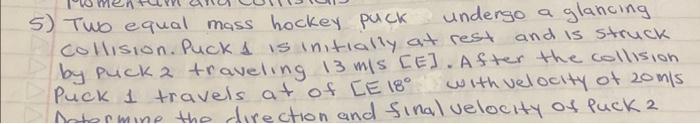 Momentum and Collisions
5) Two equal mass hockey puck undergo a glancing
collision. Puck 1 is initially at rest and is struck
by puck 2 traveling 13 m/s [E]. After the collision
Puck 1 travels at of [E 18° with velocity of 20m/s
Determine the direction and final velocity of Puck 2